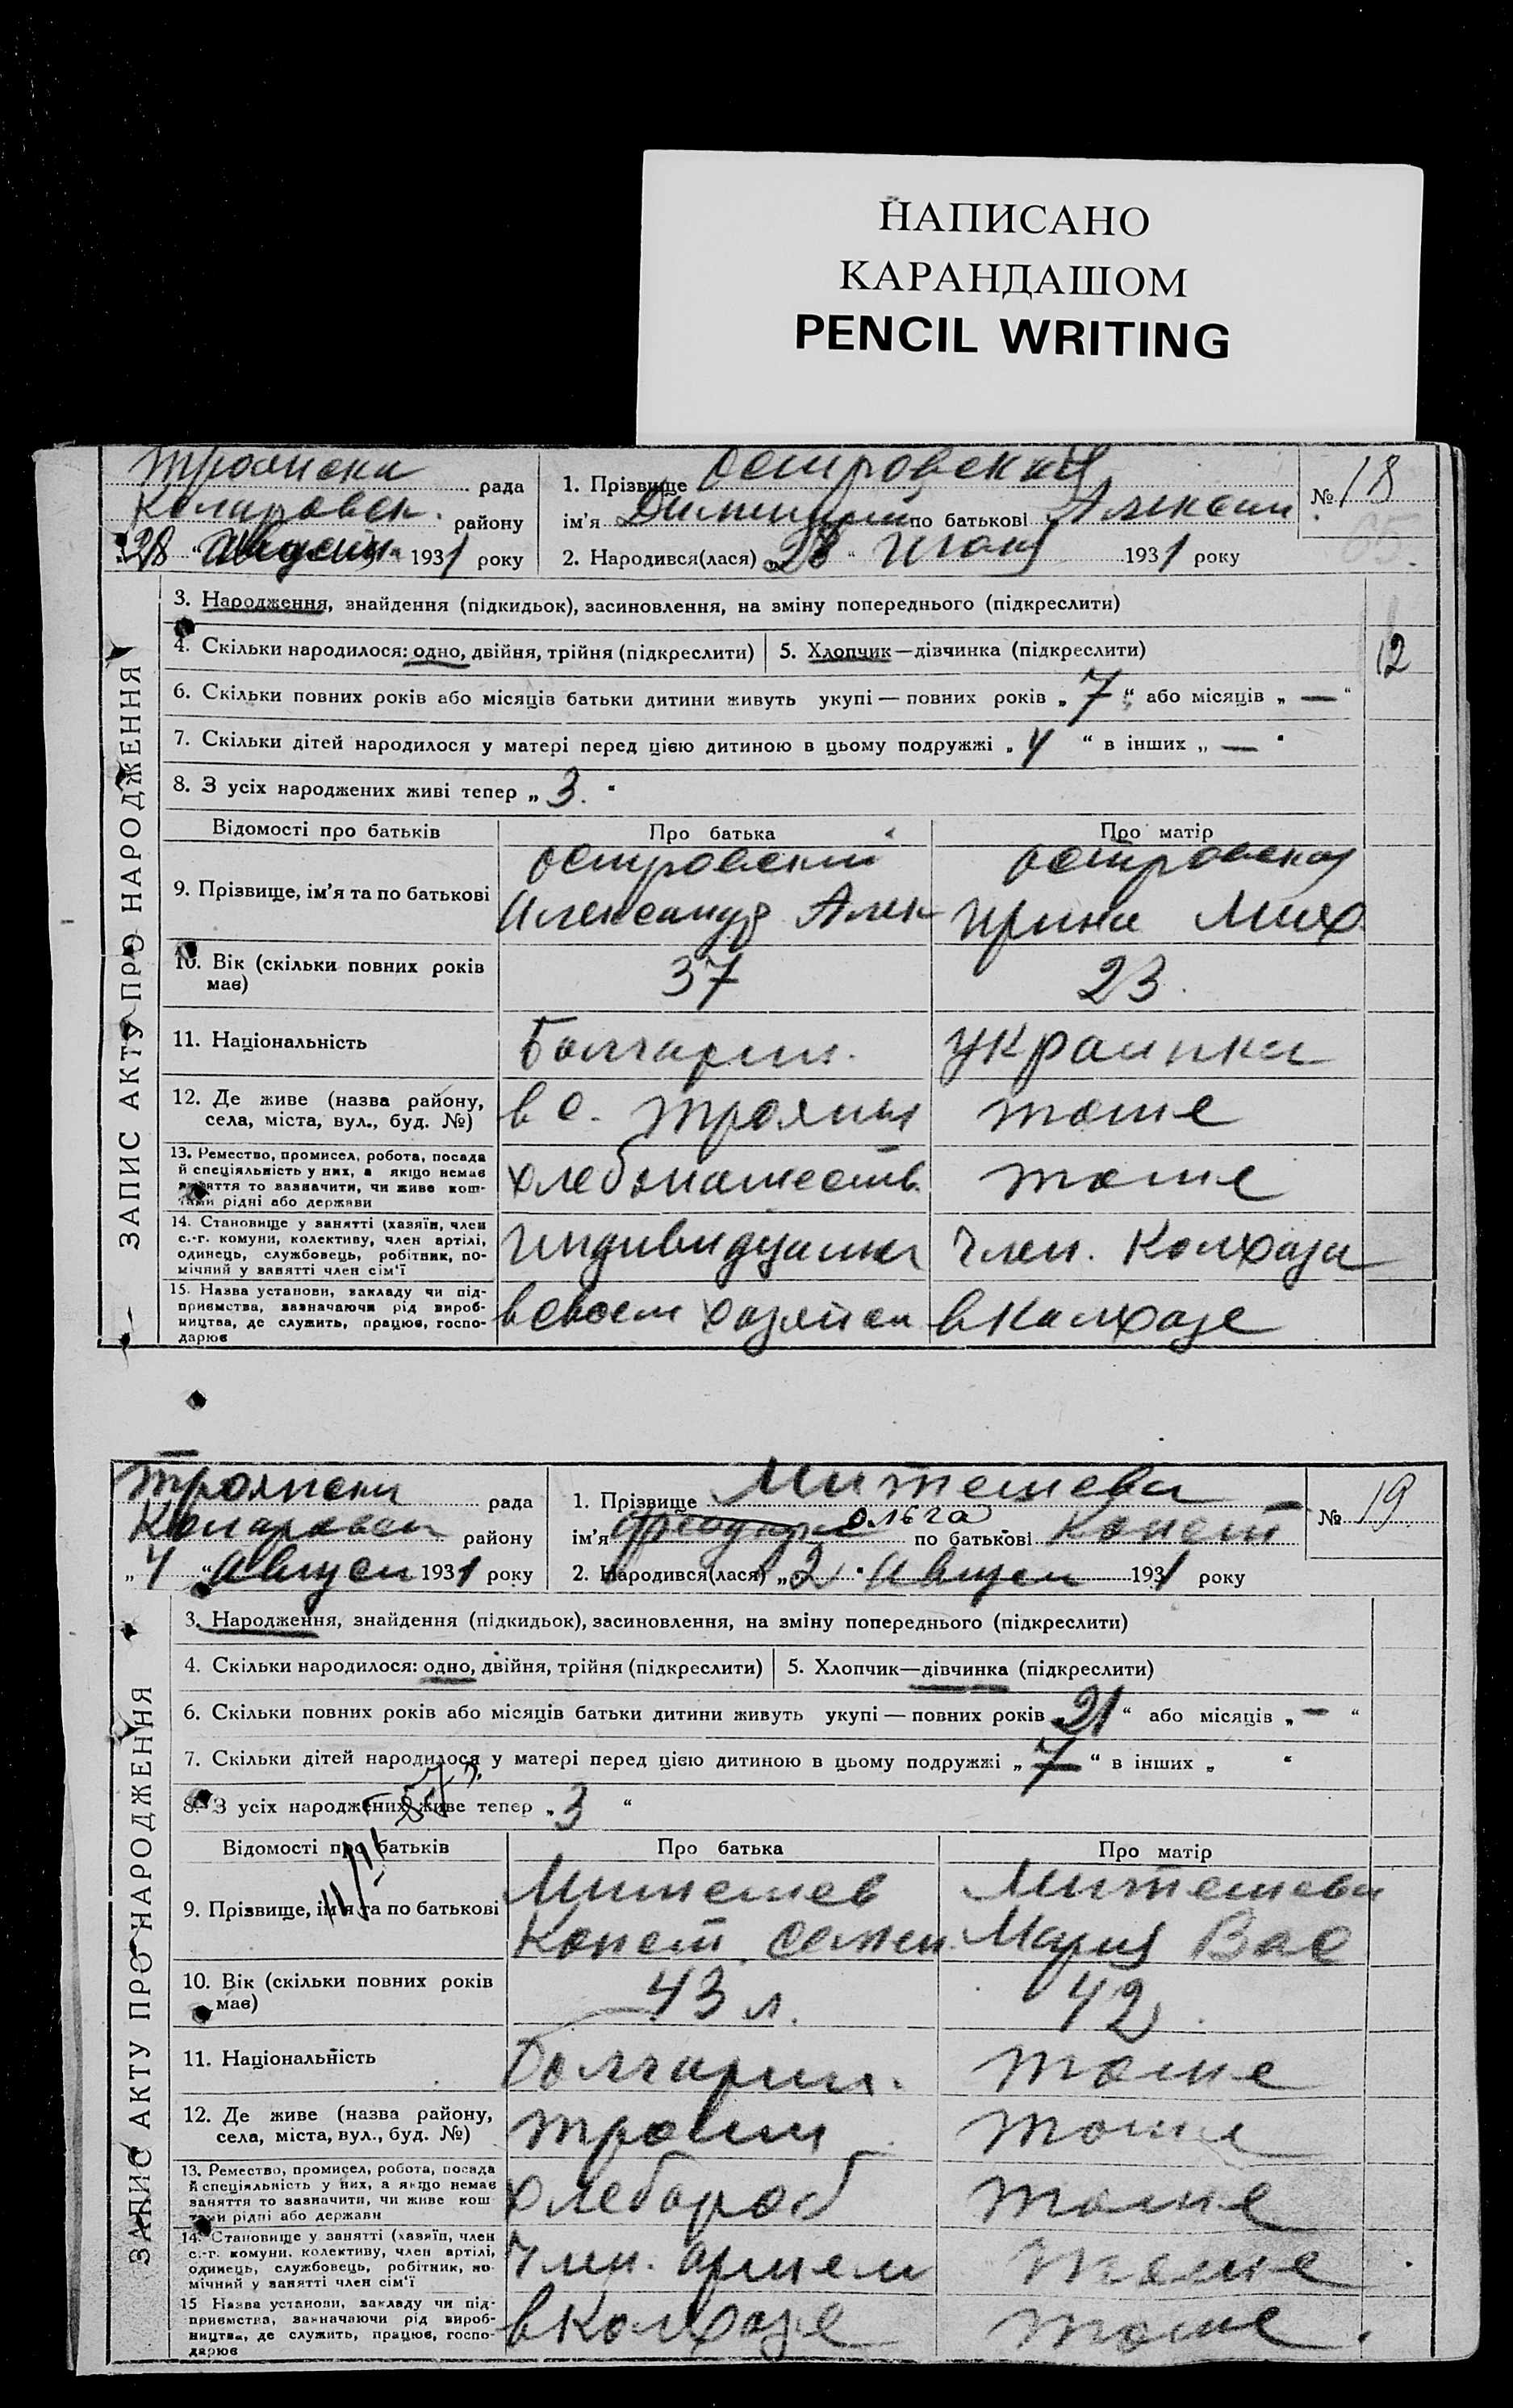 НАПИСАНО
КАРАНДАШОМ
PENCIL WRITING
Троянска рада
Коларовск. району
28 1931 року
1. Прізвище Островский
ім'я Димитрий по батькові Алексан
№ 18
65.
2. Народився(лася) „28“ 1931 року
3. Народження, знайдення (підкидьок), засиновлення, на зміну попереднього (підкреслити)
4. Скільки народилося: одно, двійня, трійня (підкреслити) 5. Хлопчик—дівчинка (підкреслити)
12
6. Скільки повних років або місяців батьки дитини живуть укупі — повних років „7“ або місяців „—“
7. Скільки дітей народилося у матері перед цією дитиною в цьому подружжі „4“ в інших „—“
8. З усіх народжених живі тепер „3.“
Відомості про батьків Про батька Про матір
9. Прізвище, ім'я та по батькові
Островский Островская
Александр Алек Ирина Мих.
10. Вік (скільки повних років має) 37 23.
11. Національність Болгарин. Украинка
12. Де живе (назва району, села, міста, вул., буд. №) в с. Трояны тоже
13. Ремество, промисел, робота, посада й спеціяльність у них, а якщо немає заняття то зазначити, чи живе коштами рідні або держави тоже
14. Становище у занятті (хазяїн, член с.-г. комуни, колективу, член артілі, одинець, службовець, робітник, помічний у занятті член сім'ї Член. Колхоза
15. Назва установи, закладу чи підприємства, зазначаючи рід виробництва, де служить, працює, господарює в своем хозяйси в Колхозе
ЗАПИС АКТУ ПРО НАРОДЖЕННЯ
Троянска рада
Коларовск району
„4“ Август 1931 року
1. Прізвище Митешева
ім'я Ольга по батькові Конст
№ 19
2. Народився(лася) „2“ Август 1931 року
3. Народження, знайдення (підкидьок), засиновлення, на зміну попереднього (підкреслити)
4. Скільки народилося: одно, двійня, трійня (підкреслити) 5. Хлопчик—дівчинка (підкреслити)
6. Скільки повних років або місяців батьки дитини живуть укупі — повних років „21“ або місяців „—“
7. Скільки дітей народилося у матері перед цією дитиною в цьому подружжі „7“ в інших „ “
8. З усіх народжених живе тепер „3“
Відомості про батьків Про батька Про матір
9. Прізвище, ім'я та по батькові
Митешев Митешева
Конст. Семен. Мария Вас
10. Вік (скільки повних років має) 43 л. 42.
11. Національність Болгарин. тоже
12. Де живе (назва району, села, міста, вул., буд. №) Трояны тоже
13. Ремество, промисел, робота, посада й спеціяльність у них, а якщо немає заняття то зазначити, чи живе коштами рідні або держави Хлебороб тоже
14. Становище у занятті (хазяїн, член с.-г. комуни, колективу, член артілі, одинець, службовець, робітник, помічний у занятті член сім'ї Член. артели тоже
15 Назва установи, закладу чи підприємства, зазначаючи рід виробництва, де служить, працює, господарює в Колхозе тоже.
ЗАПИС АКТУ ПРО НАРОДЖЕННЯ